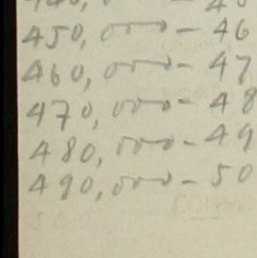 450,000 - 46
460,000 - 47
470,000 - 48
480,000 - 49
490,000 - 50